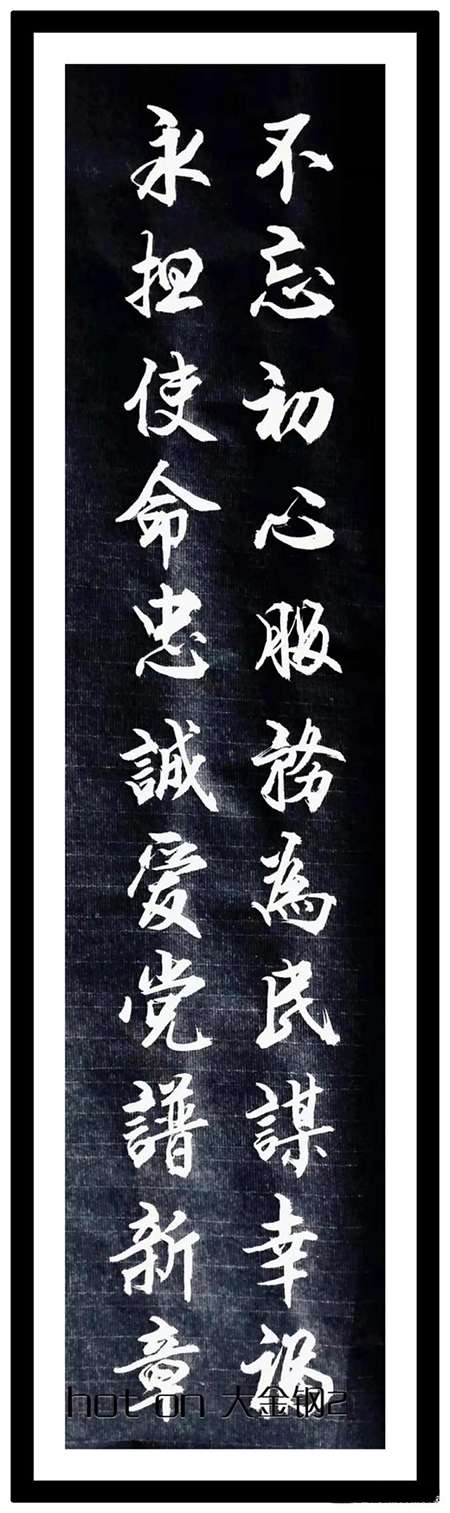 不忘初心服務為民謀幸福
永担使命忠誠爱党譜新章
hot on 大金钢2